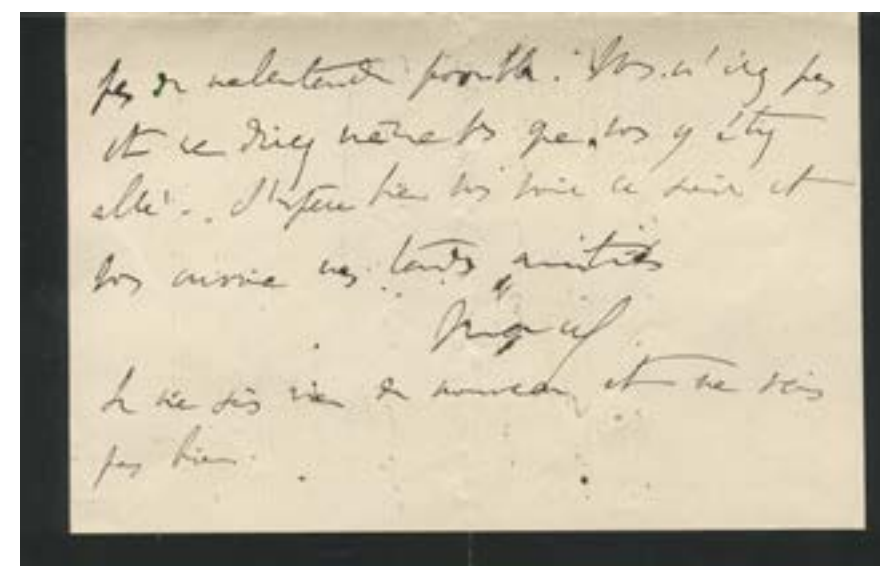 pas de malentendu possible. Vous n'irez pas
et ne direz même pas que vous y étiez
allé. J'espère bien vous voir ce soir et
vous envoie mes tendres amitiés
Je ne sais rien de nouveau et ne vais
pas bien.